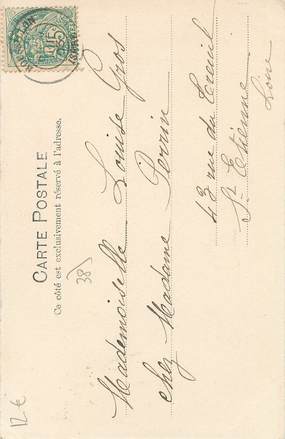 CARTE POSTALE
Ce côté est exclusivement réservé à l'adresse.
38
Mademoiselle Louise Gros
chez Madame Perrin
43 rue du Treuil
St Etienne
Loire
12 €